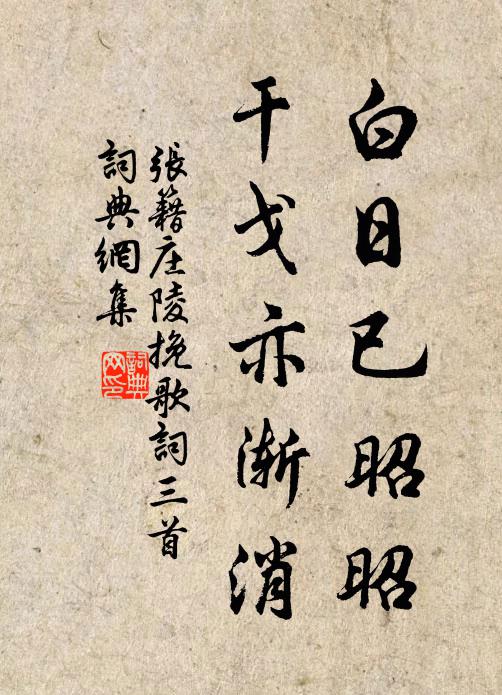 白日已昭昭
干戈亦漸消
張籍庄陵挽歌詞三首
詞典網集
詞典網印